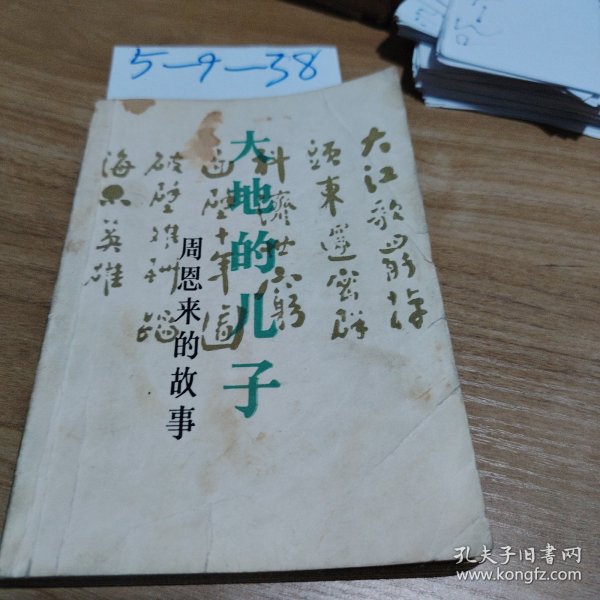 5-9-38
大地的儿子
周恩来的故事
大江歌罷掉
頭東邃密群
科濟世窮
面壁十年圖
破壁難酬蹈
海亦英雄
孔夫子旧书网
www.kongfz.com